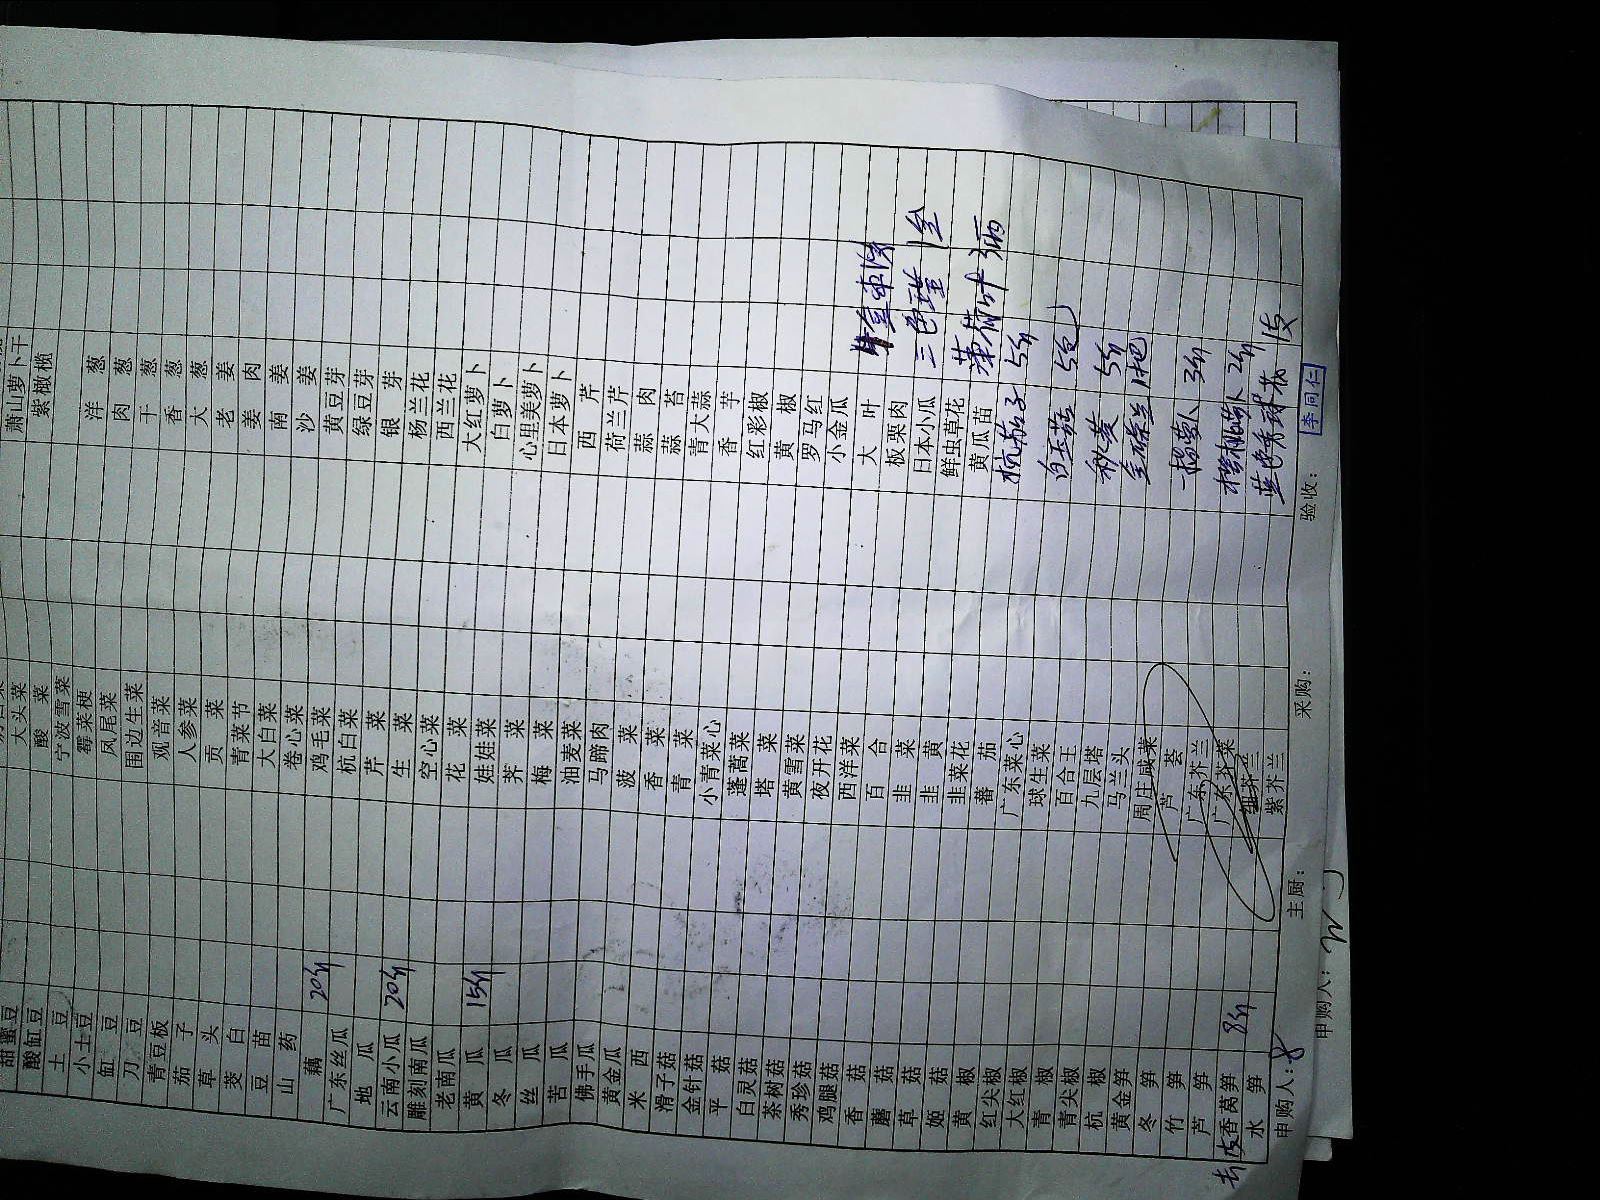 甜蜜豆
酸缸豆
土豆
小土豆
缸豆
刀豆
青豆板
茄子
草头
茭白
豆苗
山药
藕 20斤
广东丝瓜
地瓜
云南小瓜 20斤
雕刻南瓜
老南瓜
黄瓜 15斤
冬瓜
丝瓜
苦瓜
佛手瓜
黄金瓜
米西
滑子菇
金针菇
平菇
白灵菇
茶树菇
秀珍菇
鸡腿菇
香菇
蘑菇
草菇
姬菇
黄椒
红尖椒
大红椒
青椒
青尖椒
杭椒
黄金笋
冬笋
竹笋
芦笋
去皮香莴笋 8斤
水笋
大头菜
酸菜
宁波雪菜
霉菜梗
凤尾菜
围边生菜
观音菜
人参菜
贡菜
青菜节
大白菜
卷心菜
鸡毛菜
杭白菜
芹菜
生菜
空心菜
花菜
娃娃菜
荠菜
梅菜
油麦菜
马蹄肉
菠菜
香菜
青菜
小青菜心
蓬蒿菜
塔菜
黄雪菜
夜开花
西洋菜
百合
韭菜
韭黄
韭菜花
蕃茄
广东菜心
球生菜
百合王
九层塔
马兰头
周庄咸菜
芦荟
广东芥兰
广东芥菜
细芥兰
紫芥兰
萧山萝卜干
紫橄榄
洋葱
肉葱
干葱
香葱
大葱
老姜
姜肉
南姜
沙姜
黄豆芽
绿豆芽
银芽
杨兰花
西兰花
大红萝卜
白萝卜
心里美萝卜
日本萝卜
西芹
荷兰芹
蒜肉
蒜苔
青大蒜
香芋
红彩椒
黄椒
罗马红
小金瓜
大叶
板栗肉
日本小瓜
鲜虫草花
黄瓜苗
三色堇 1盒
薄荷叶 3两
杭茄子 5斤
白玉菇 5包
秋葵 5斤
1把
3斤
2斤
1支
申购人：
主厨：
采购：
验收： 李同仁
申购人：